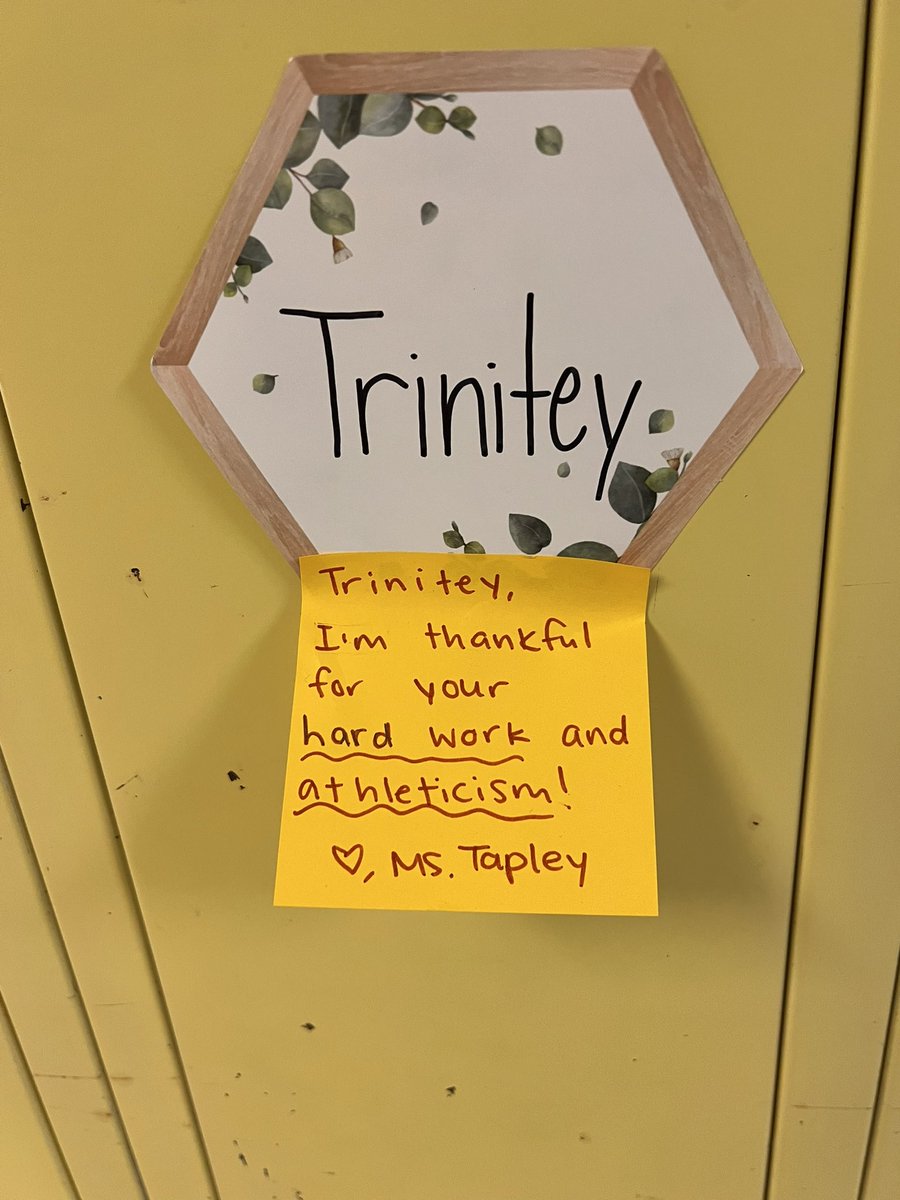 Trinitey
Trinitey,
I'm thankful
for your
hard work and
athleticism!
♡, Ms. Tapley